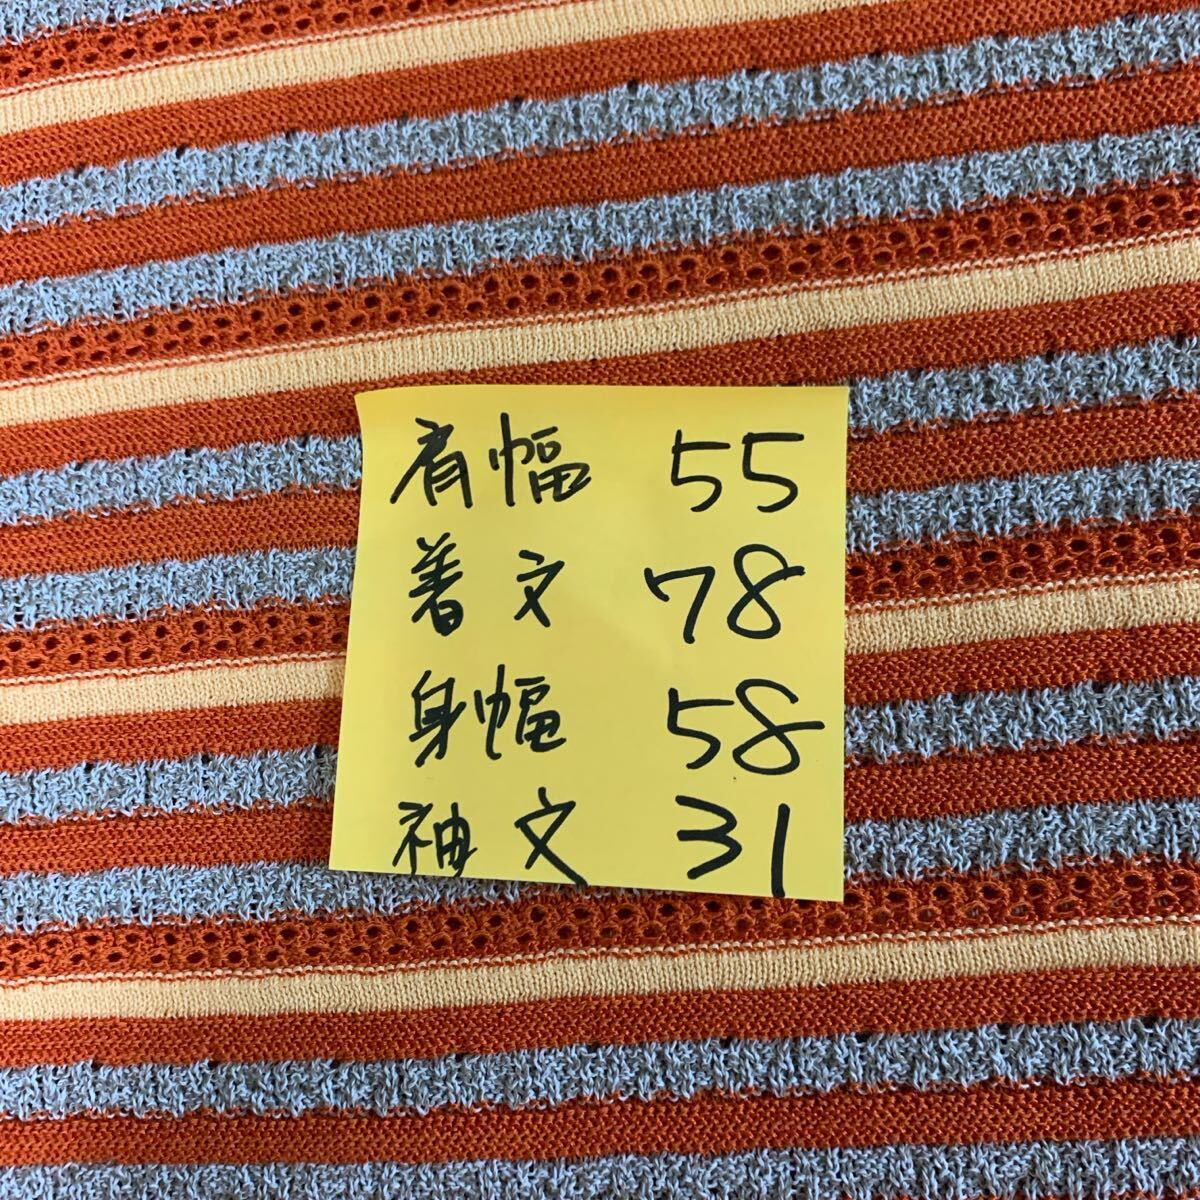 肩幅 55
着丈 78
身幅 58
袖丈 31